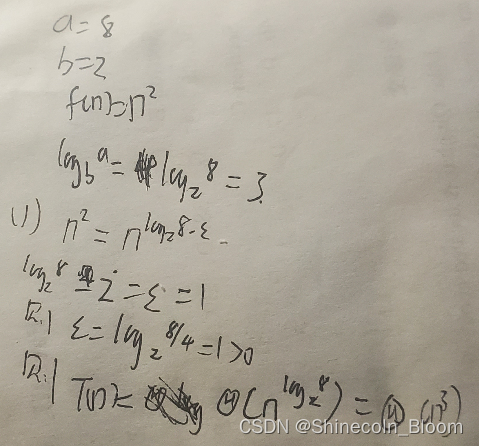 a=8
b=2
f(n)=n²
log_b^a = log_2^8 = 3.
(1) n² = n^{log_2 8-ε}
log_2^8 - 2 = ε = 1
则 ε = log_2^{8/4} = 1 > 0
则 T(n)= Θ(n^{log_2^8}) = Θ(n³)
CSDN @Shinecoln_Bloom